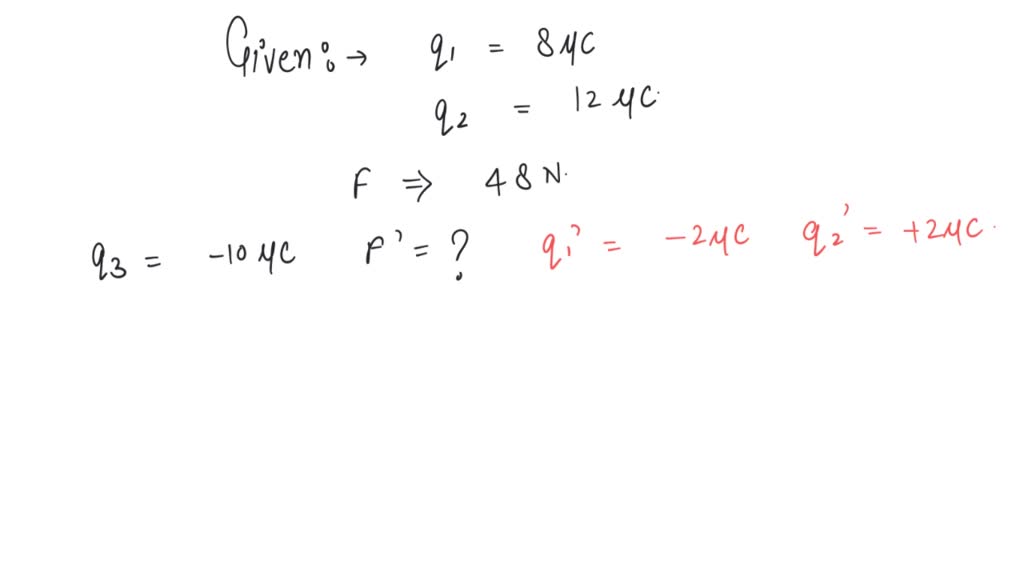 Given:→ q1 = 8 μC
q2 = 12 μC.
F ⇒ 48 N.
q3 = -10 μC F' = ? q1' = -2μC q2' = +2μC.